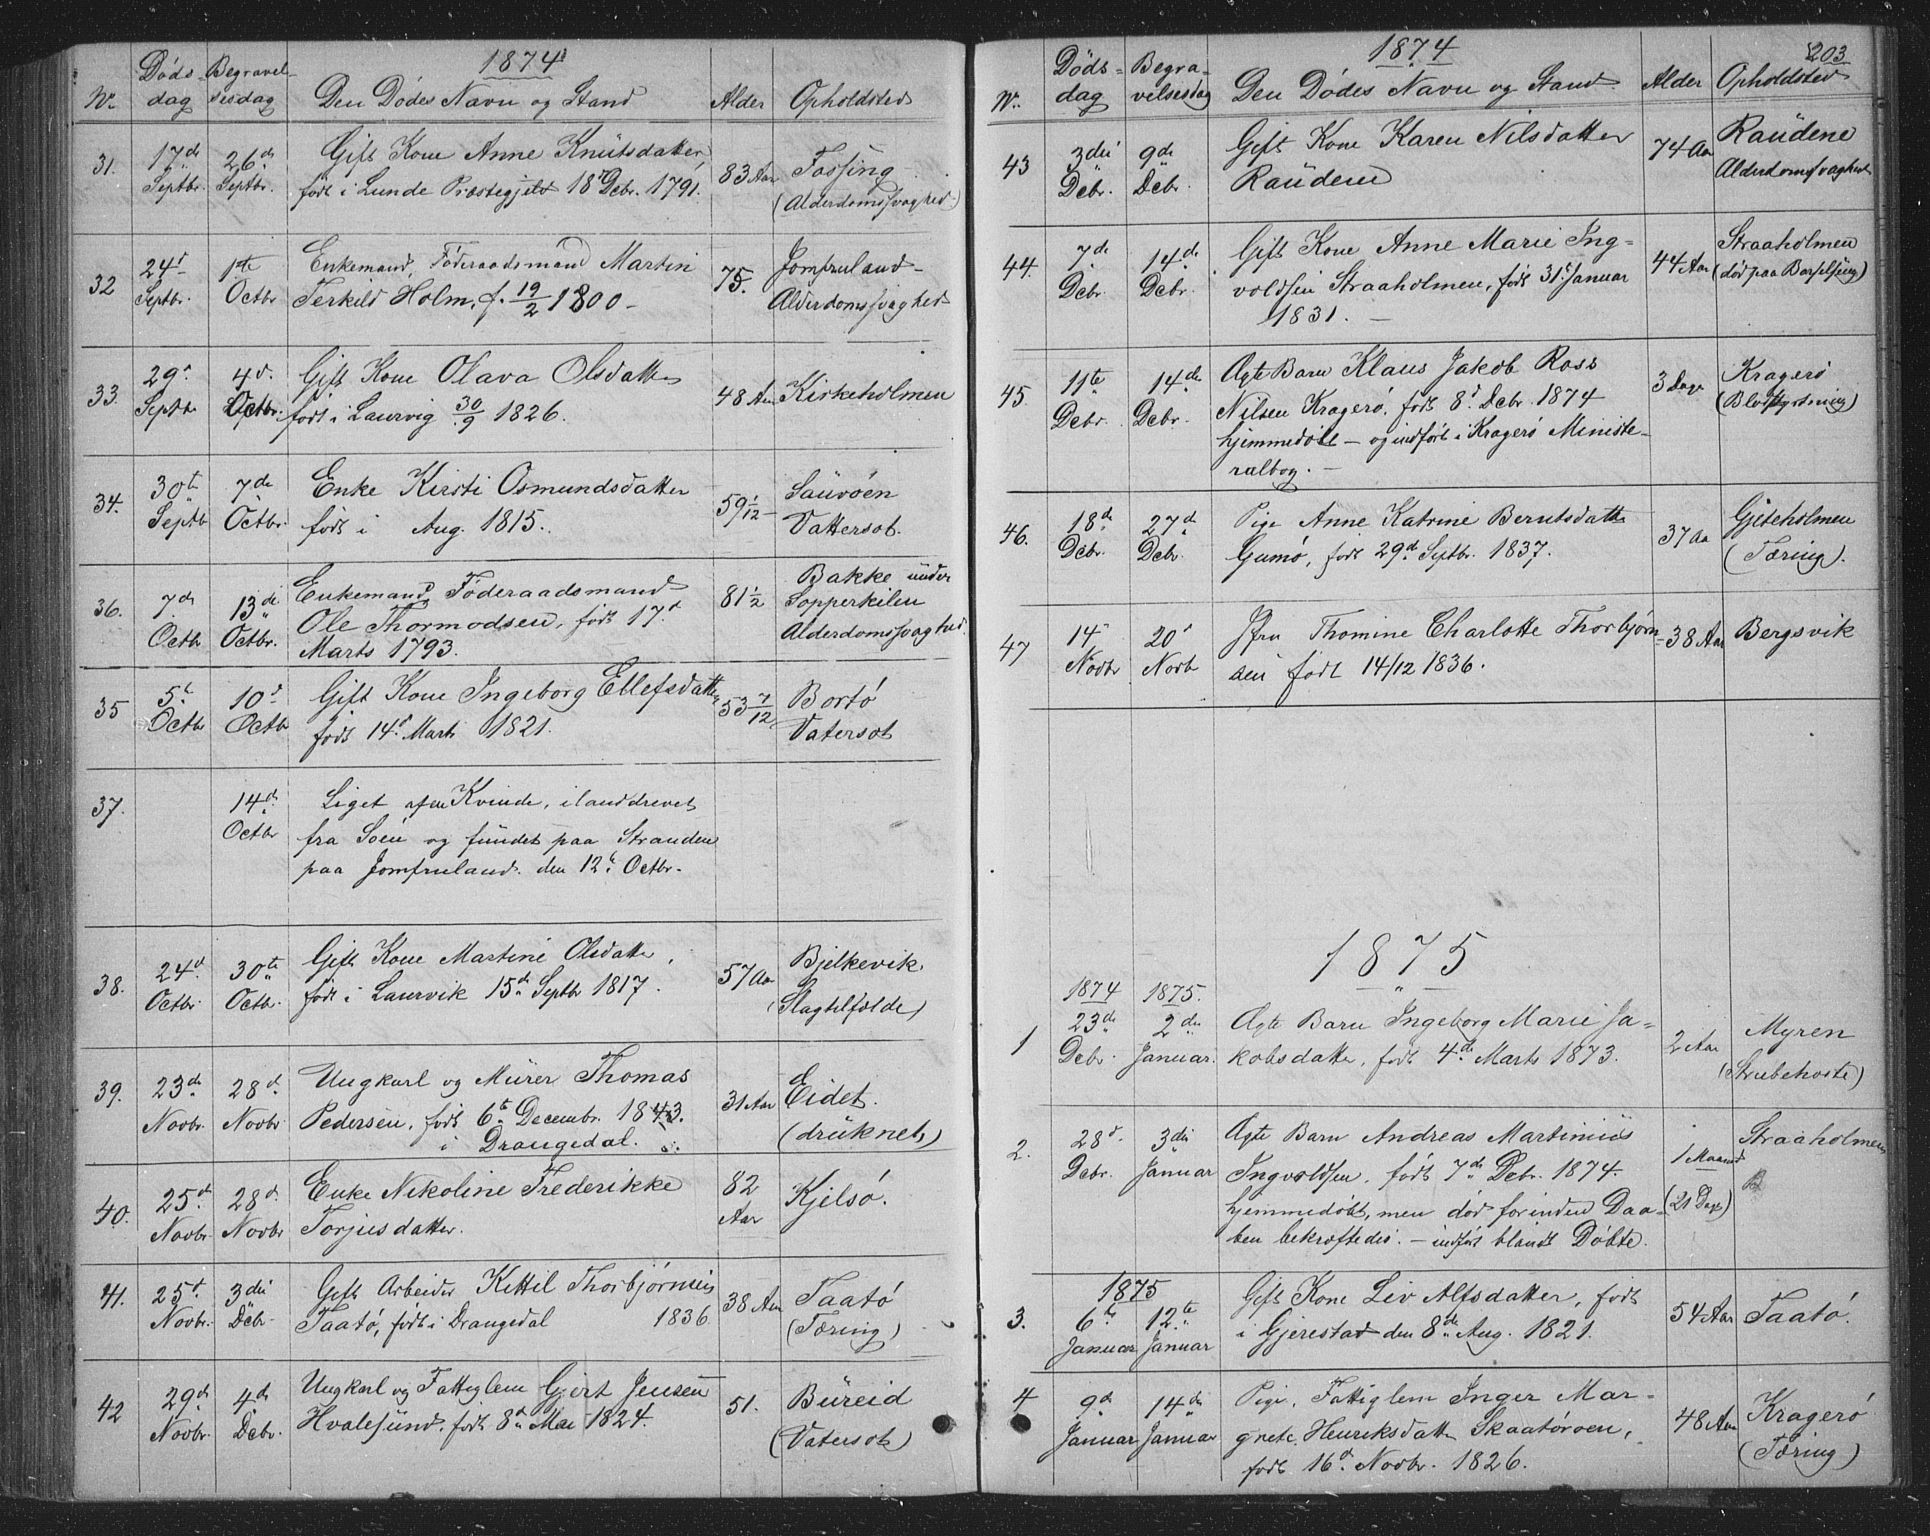 1874
No. Dödsdag Begravelsesdag Den Dödes Navn og Stand Alder Opholdsted
31. 17de Septbr. 26de Septbr. Gift Kone Anne Knutsdatter 83 Aar Fossing
født i Lunde Præstegjeld 18d Debr. 1791. (Alderdomssvaghed)
32 24d Septbr. 1ste Octbr Enkemand, Føderaadsmand Martin 75. Jomfruland
Terkild Holm, f. 19/2 1800 - Alderdomssvaghed
33. 29d Septbr 4d. Octbr. Gift Kone Olava Olsdatter 48 Aar Kirkeholmen
født i Laurvig 30/9 1826.
34. 30te Septb 7de Octbr. Enke Kirsti Osmundsdatter 59 1/12 Saüvöen
født i Aug. 1815. Vattersot.
36. 7de Octbr 13de Octbr. Enkemand Föderaadsmand 81 1/2 Bakke ünder
Ole Thormodsen, født 17d Sopperkilen
Marts 1793. Alderdomssvaghed.
35 5t Octbr 10d Octb Gift Kone Ingeborg Ellefsdatter 53 7/12 Bortö
født 14d Marts 1821. Vatersot
37. 14d. Octbr Liget af en Kvinde, ilanddrevet
fra Soen og fundet paa Stranden
paa Jomfruland den 12te Octbr.
38. 24d Octbr. 30te Octbr. Gift Kone Martine Olsdatter, 57 Aar Bjelkevik
født i Laurvik 15de Septbr 1817. (Slagtilfælde)
39. 23de Novbr. 28d Novbr Ungkarl og Mürer Thomas 31 Aar Eidet.
Pedersen, født 6te Decembr. 1843. (drüknet)
i Drangedal.
40. 25d Novbr. 28d. Novbr Enke Nikoline Frederikke 82 Aar Kjelsö.
Torjusdatter.
41. 25d. Novbr. 3die Debr. Gift Arbeider Kittil Thorbjörnsen 38 Aar Taatö
Taatö, født i Drangedal 1836 (Tæring)
42 29de Novbr. 4de Debr. Ungkarl og Fattiglem Gjert Jensen 51. Büreid
Hvalesünd, født 8de Mai 1824. (Vatersot)
203
1874
No. Dödsdag Begravelsesdag Den Dödes Navn og Stand Alder Opholdsted
43 3die Debr. 9de Debr. Gift Kone Karen Nilsdatter 74 Aar Raüdene
Raüden Alderdomssvaghed
44. 7de Debr. 14de Debr. Gift Kone Anne Marie Ing- 44 Aar Straaholmen
voldsen Straaholmen, født 31. Januar (död paa Barselseng)
1831. -
45 11te Debr. 14de Debr. Ægte Barn Klaus Jakob Ross 3 Dage Kragerö
Nilsen Kragerö, født 8d Debr. 1874 (Blodstyrtning)
hjemmedöbt - og indført i Kragerö Ministe-
rialbog. -
46. 18de Debr. 27de Debr. Pige Anne Katrine Berntsdatter 37 Aar Gjeteholmen
Gumö, født 29de Septbr. 1837. (Tæring).
47 14d Novbr 20d Novb Jfru Thomine Charlotte Thorbjörn- 38 Aar Bergsvik
sen født 14/12 1836.
1875
1874 1875.
1 23de Debr. 2den Januar. Ægte Barn Ingeborg Marie Ja- 2 Aar Myren
kobsdatter, født 4de Marts 1873. (Strubehoste)
2. 28d. Debr. 3die Januar Ægte Barn Andreas Martinius 1 Maaned Straaholmen
Ingvoldsen, født 7de Debr. 1874. (21 Dage)
hjemmedöbt, men död forinden Daa-
ben bekræftedes. - indført blandt Döbte.
1875
3. 6te Januar 12te Januar Gift Kone Liv Alfsdatter, født 54 Aar Taatö.
i Gjerestad den 8de Aug. 1821.
4 9d Januar 14de Januar Pige, Fattiglem Inger Mar- 48 Aar Kragerö
grete Henriksdatter Skaatöroen, (Tæring)
født 16d. Novbr. 1826.